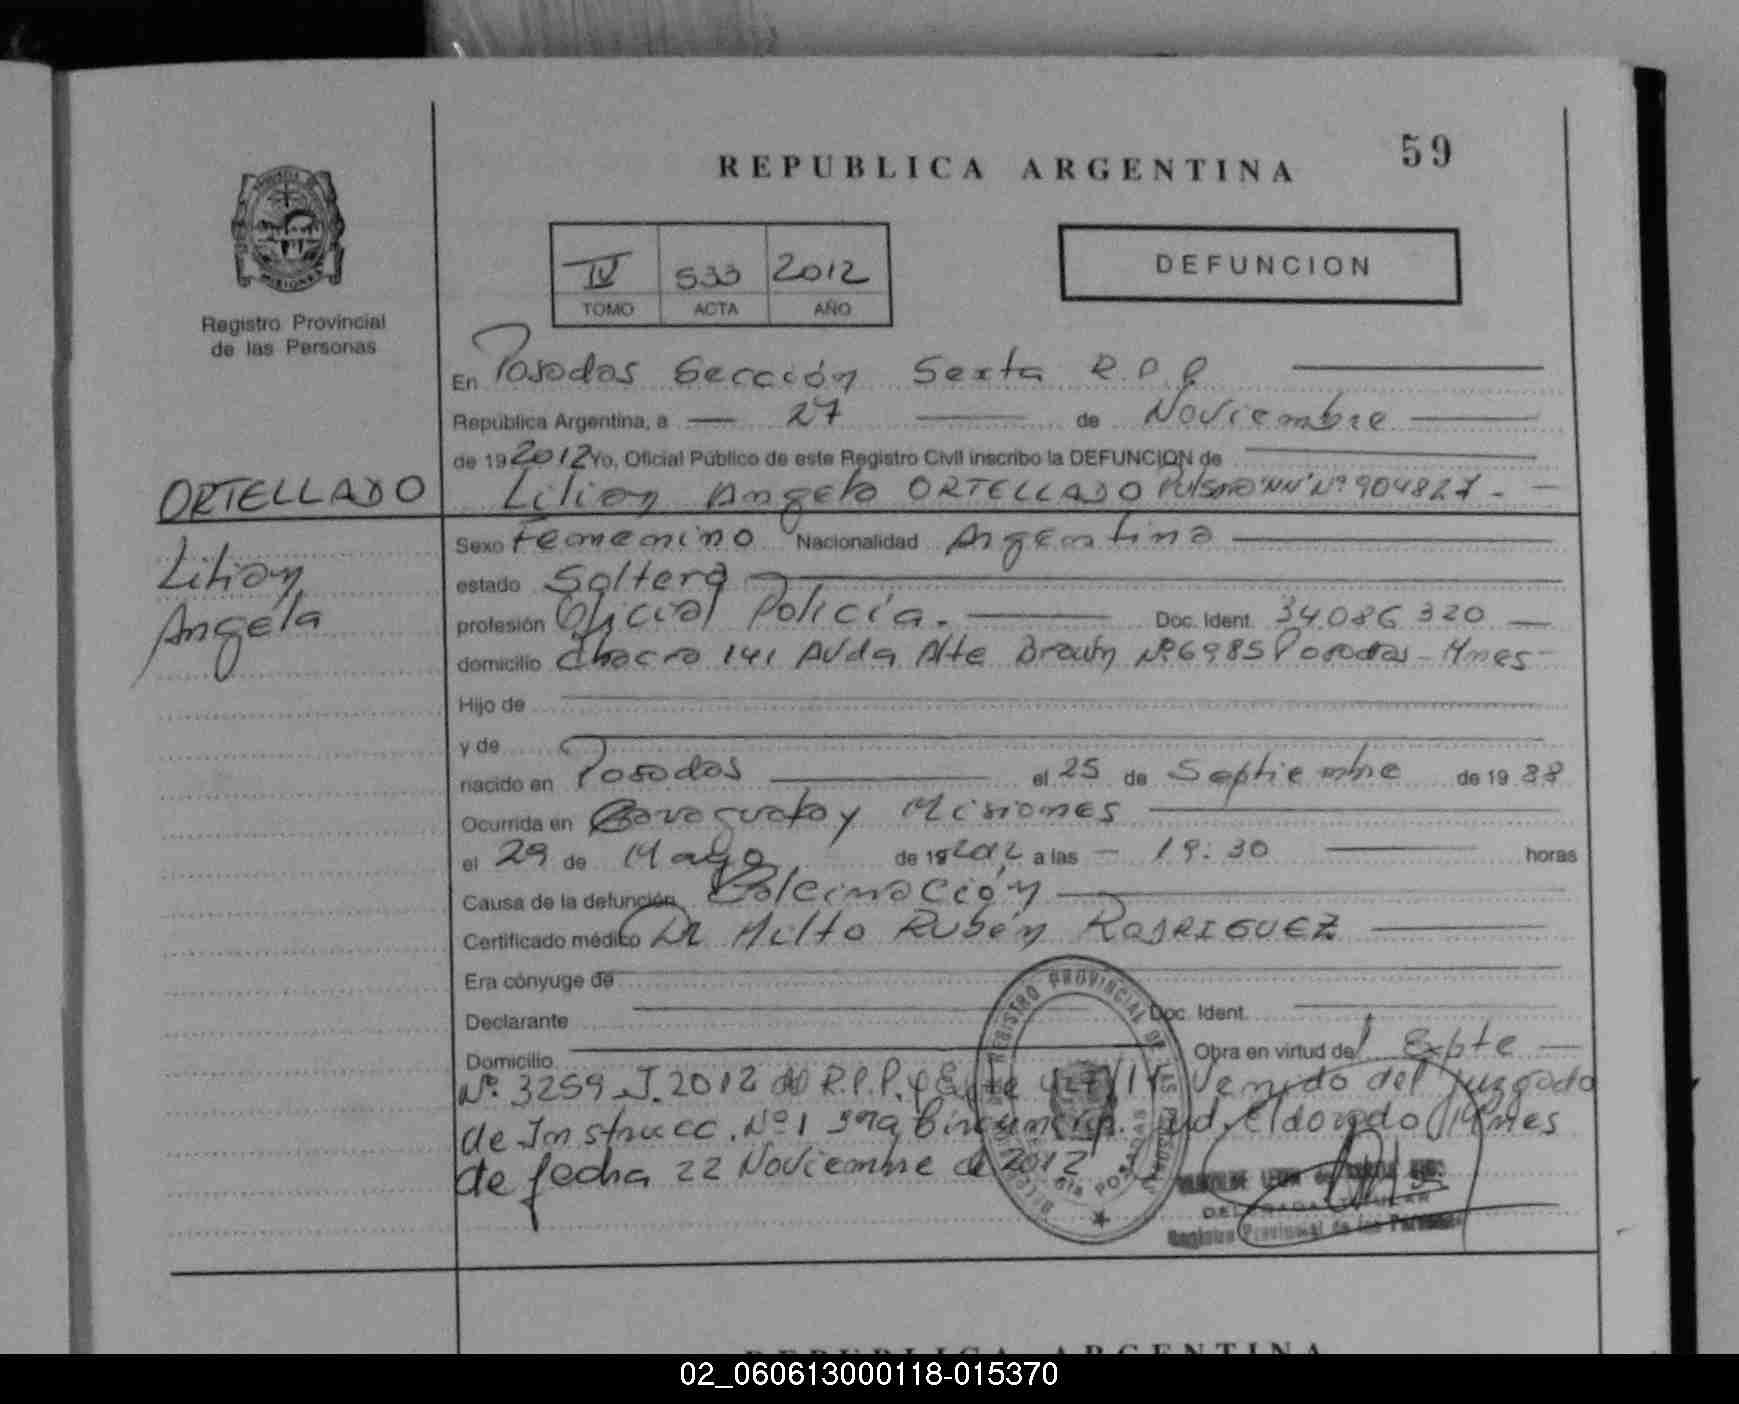 59
REPUBLICA ARGENTINA
DEFUNCION
IV 533 2012
TOMO ACTA AÑO
Registro Provincial
de las Personas
En Posadas Sección Sexta R.P.P
República Argentina, a 27 de Noviembre
de 19 2012 Yo, Oficial Público de este Registro Civil inscribo la DEFUNCION de
ORTELLADO
Lilian
Angela
Lilian Angela ORTELLADO Nº 904827
Sexo Femenino Nacionalidad Argentina
estado Soltera
profesión Oficial Policía. Doc. Ident. 34.086.320
domicilio Chacra 141 Avda Alte Brown Nº 6985 Posadas - Mnes
Hijo de
y de
nacido en Posadas el 25 de Septiembre de 19 88
Ocurrida en Caraguatay Misiones
el 29 de Mayo de 19 2012 a las 19:30 horas
Causa de la defunción Calcinación
Certificado médico Dr Milto Rubén RODRIGUEZ
Era cónyuge de
Declarante Doc. Ident.
Domicilio Obra en virtud de Expte
Nº 3259 J. 2012 R.P.P. y venido del Juzgado
de Instrucc. Nº 1 3ra Jud. Eldorado Mnes
de fecha 22 Noviembre de 2012
REGISTRO PROVINCIAL DE LAS PERSONAS
POSADAS
DELEGADA TITULAR
Registro Provincial de las Personas
REPUBLICA ARGENTINA
02_060613000118-015370